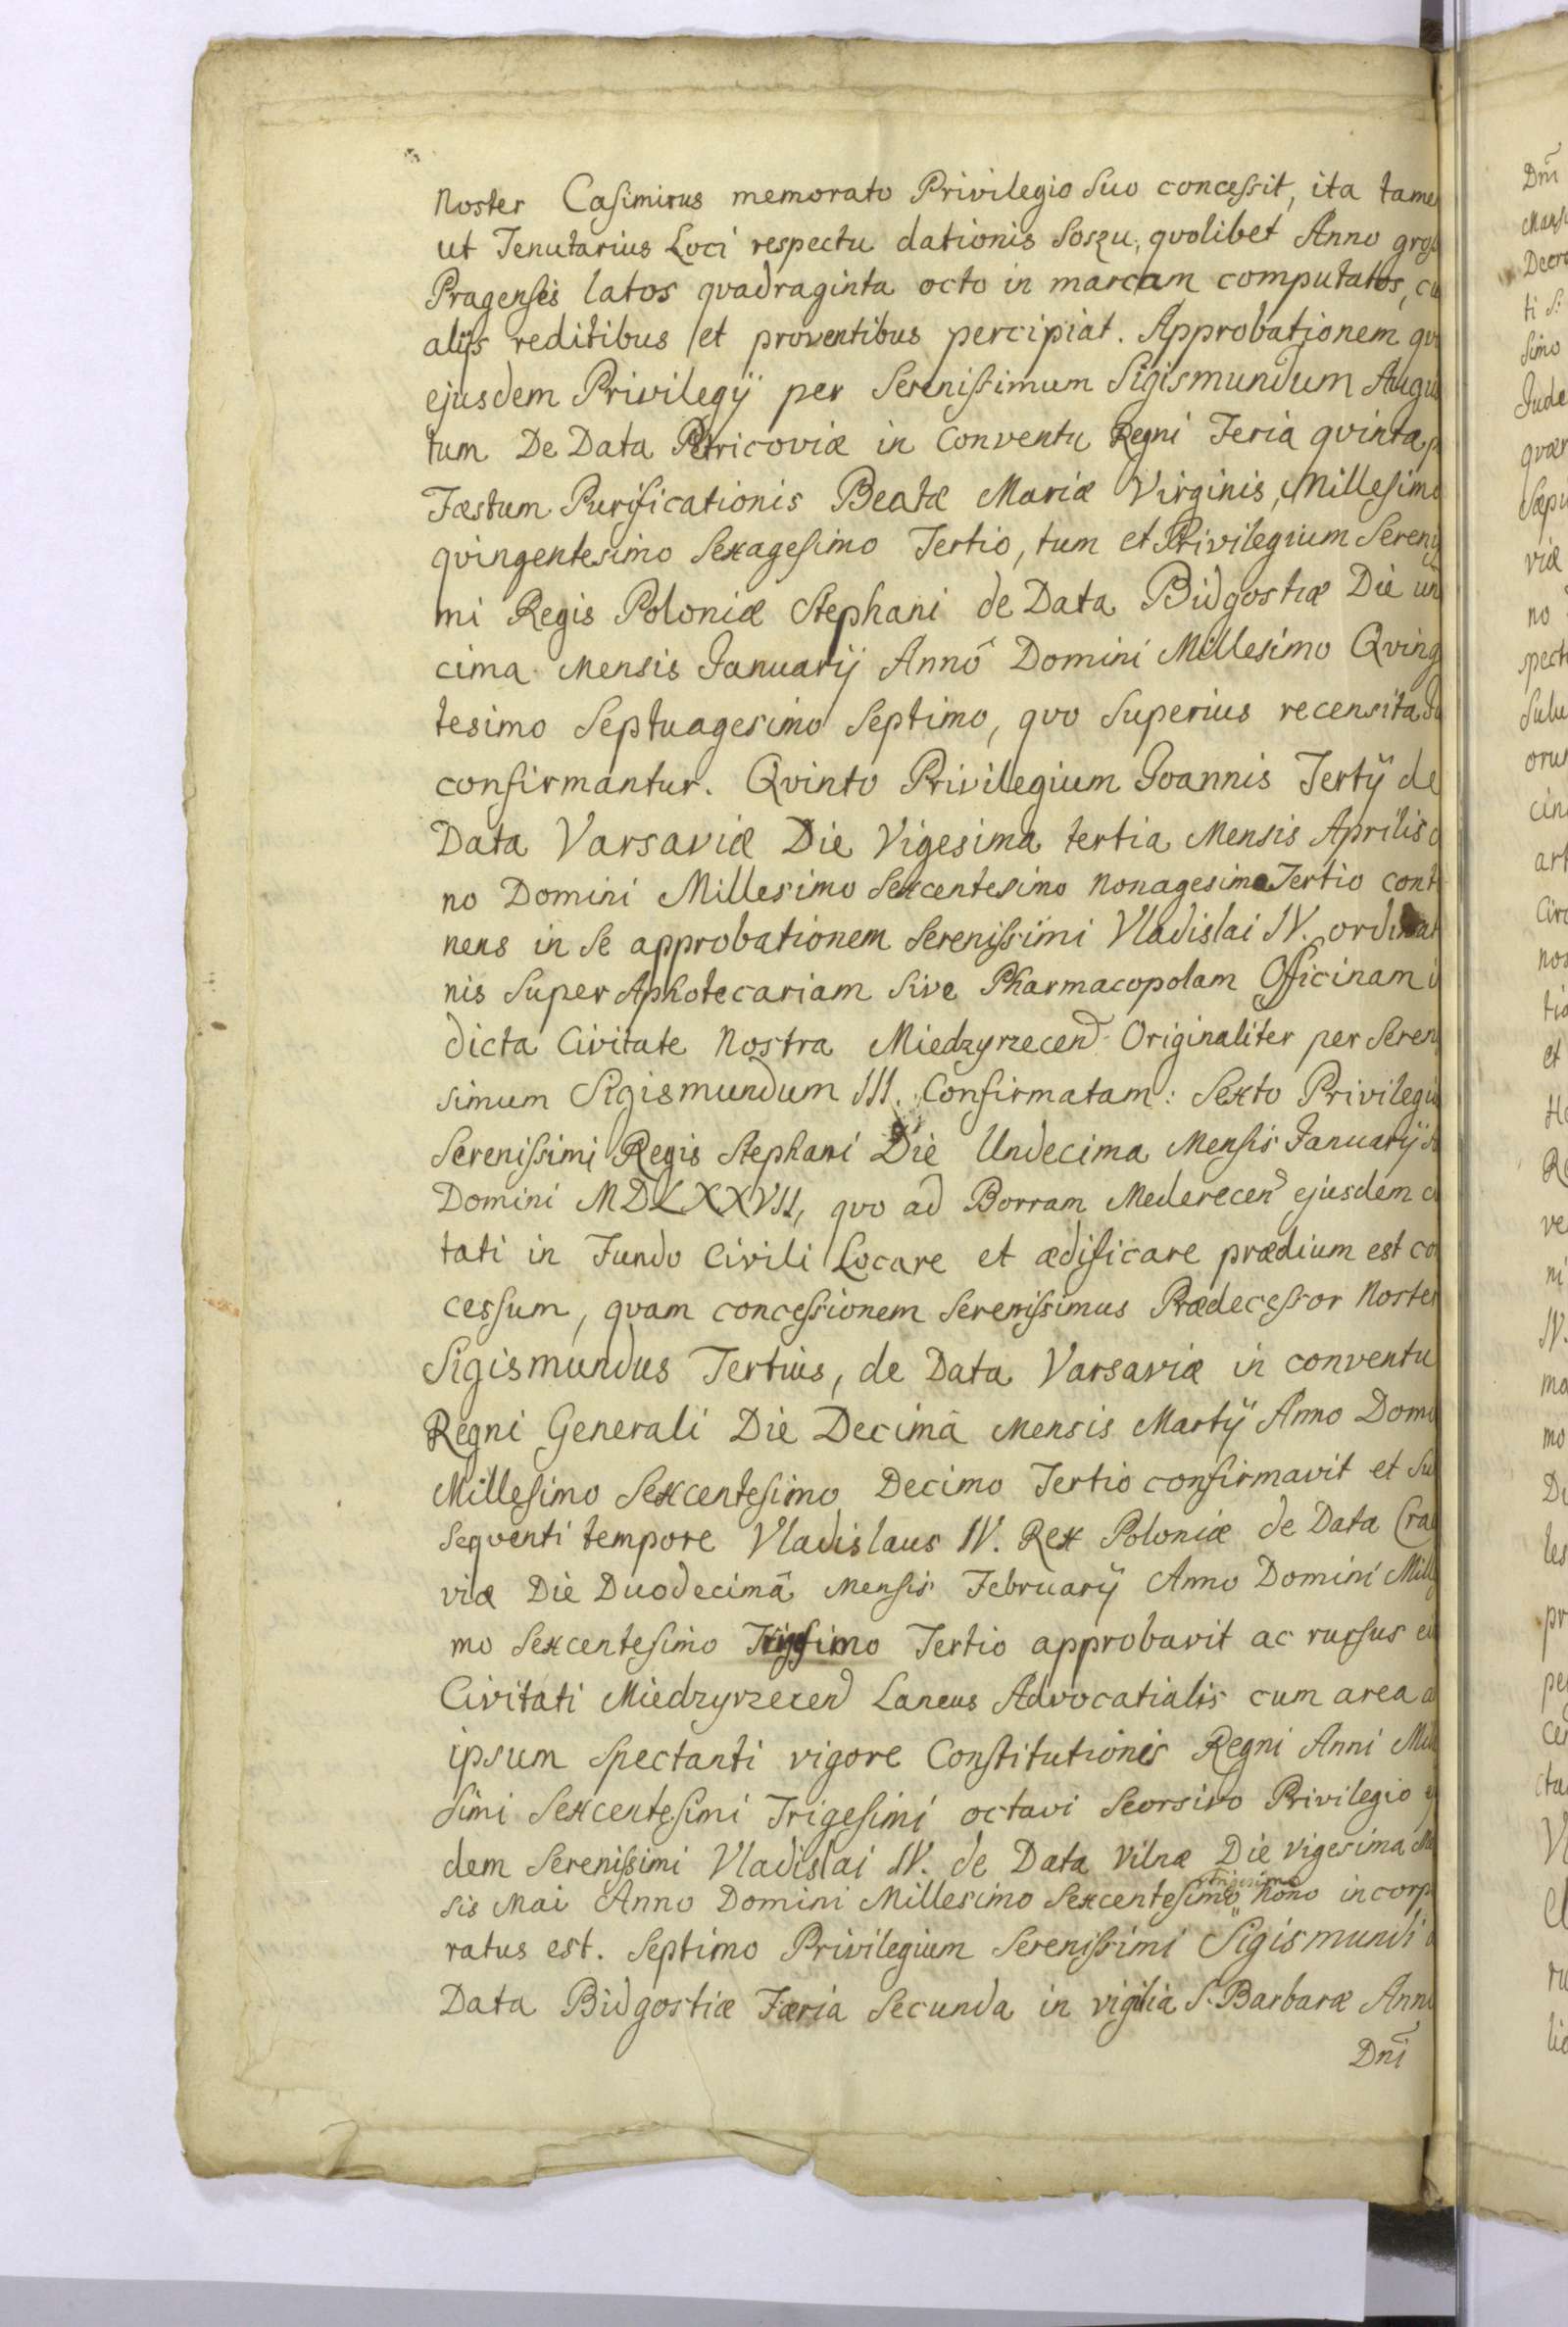 Noster Casimirus memorato Privilegio Suo concessit, ita tame
ut Tenutarius Loci respectu dationis Soszu, qvolibet Anno gros
Pragenses latos qvadraginta octo in marcam computatos, cu
alijs reditibus et proventibus percipiat. Approbationem qv
ejusdem Privilegÿ per Serenissimum Sigismundum Augus
tum De Data Petricoviæ in Conventu Regni Feria qvinta p
Fæstum Purificationis Beatæ Mariæ Virginis, Millesimo
qvingentesimo Sexagesimo Tertio, tum et Privilegium Sereniss
mi Regis Poloniæ Stephani de Data Bidgostiæ Die un
cima Mensis Januarÿ Annô Domini Millesimo Qving
tesimo Septuagesimo Septimo, qvo Superius recensita
confirmantur. Qvinto Privilegium Joannis Tertÿ de
Data Varsaviæ Die Vigesima tertia Mensis Aprilis
no Domini Millesimo Sexcentesimo Nonagesimo Tertio conti
nens in Se approbationem Serenissimi Vladislai IV. ordinat
nis Super Aphotecariam Sive Pharmacopolam Officinam i
dicta Civitate Nostra Miedzyrzecen̄ Originaliter per Seren
simum Sigismundum III. Confirmatam: Sexto Privilegiu
Serenissimi Regis Stephani Die Undecima Mensis Januarÿ
Domini MDLXXVII, qvo ad Borram Mederecen̄ ejusdem c
tati in Fundo Civili Locare et ædificare prædium est co
cessum, qvam concessionem Serenissimus Prædecessor Noster
Sigismundus Tertius, de Data Varsaviæ in conventu
Regni Generali Die Decimâ Mensis Martÿ Anno Domi
Millesimo Sexcentesimo Decimo Tertio confirmavit et Su
seqventi tempore Vladislaus IV. Rex Poloniæ de Data Cra
viæ Die Duodecimâ Mensis Februarÿ Anno Domini Mille
mo Sexcentesimo Trigesimo Tertio approbavit ac rursus ei
Civitati Miedzyrzecen̄ Laneus Advocatialis cum area a
ipsum Spectanti vigore Constitutionis Regni Anni Mille
simi Sexcentesimi Trigesimi octavi Seorsivo Privilegio ej
dem Serenissimi Vladislai IV. de Data Vilnæ Die vigesima Me
sis Mai Anno Domini Millesimo Sexcentesimo trigesimo Nono incorp
ratus est. Septimo Privilegium Serenissimi Sigismundi
Data Bidgostiæ Færia Secunda in vigilia S. Barbaræ Anno
Dn̄i
Dn̄i
ti S.
simo
qvær
viæ
no
cin
art
nos
et
ve
ni
IV.
mo
les
pr
V